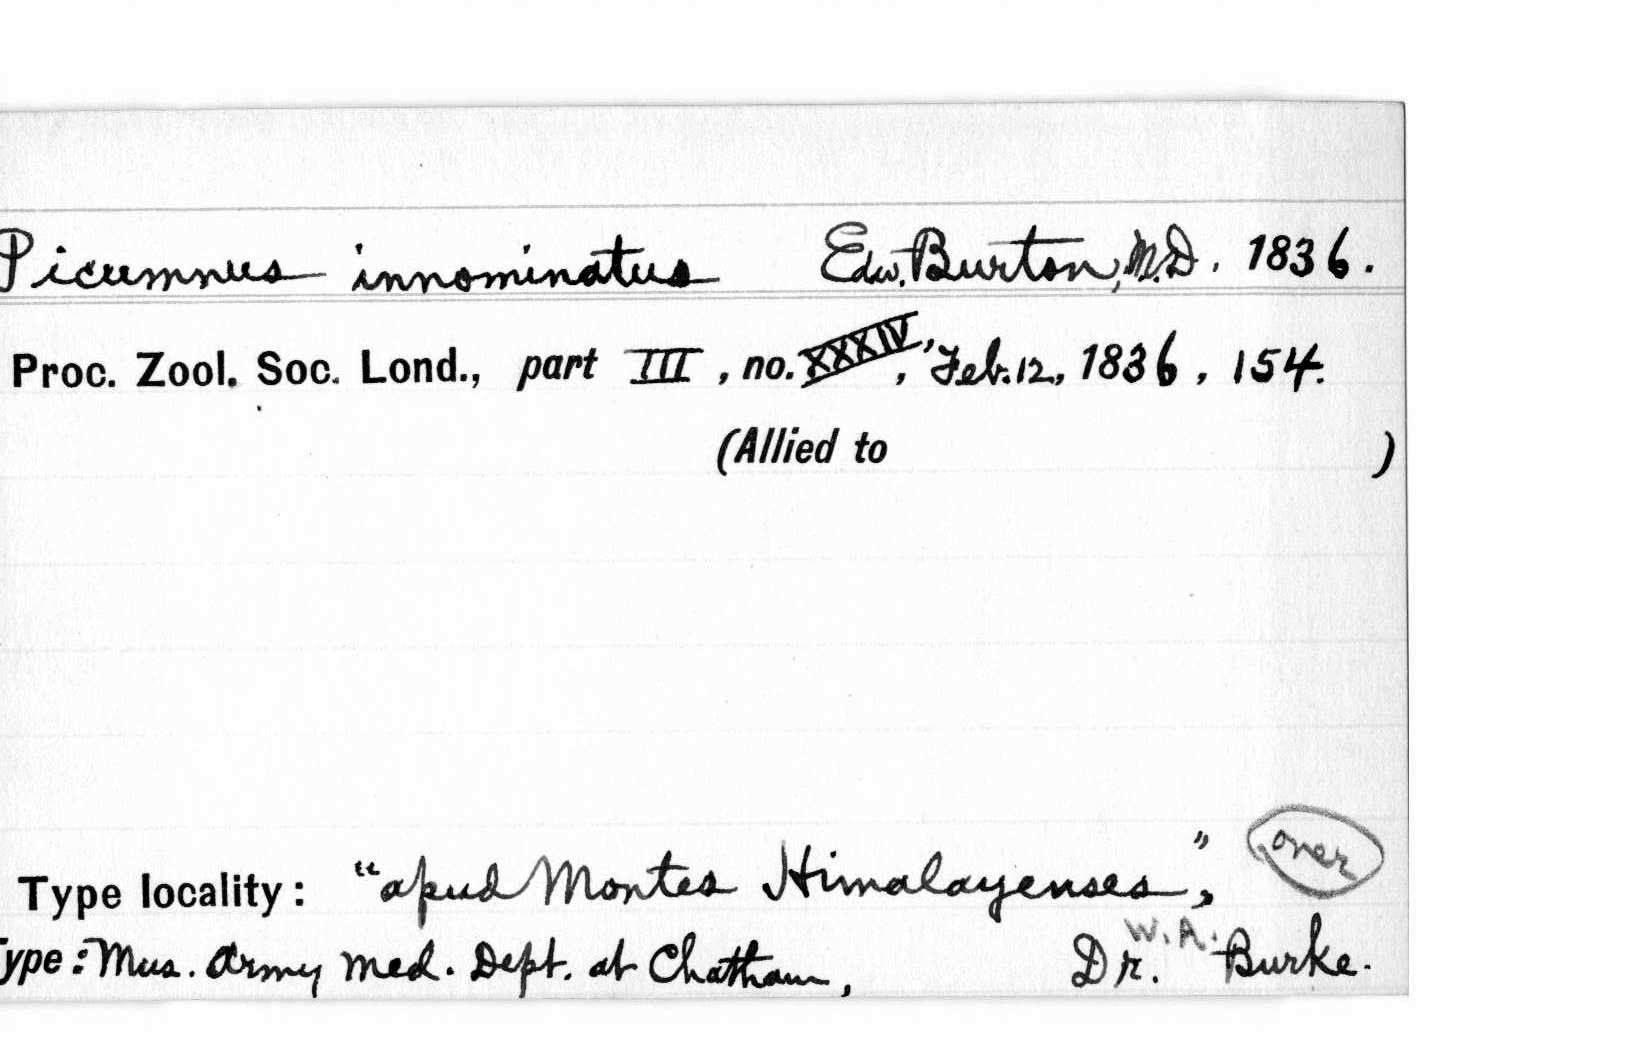 Picumnus innominatus Edw. Burton, M.D. 1836.
Proc. Zool. Soc. Lond., part III, no. XXXIV, Feb. 12, 1836, 154.
(Allied to )
over
Type locality: "apud Montes Himalayenses",
W. A.
Type: Mus. Army Med. Dept. at Chatham, Dr. Burke.